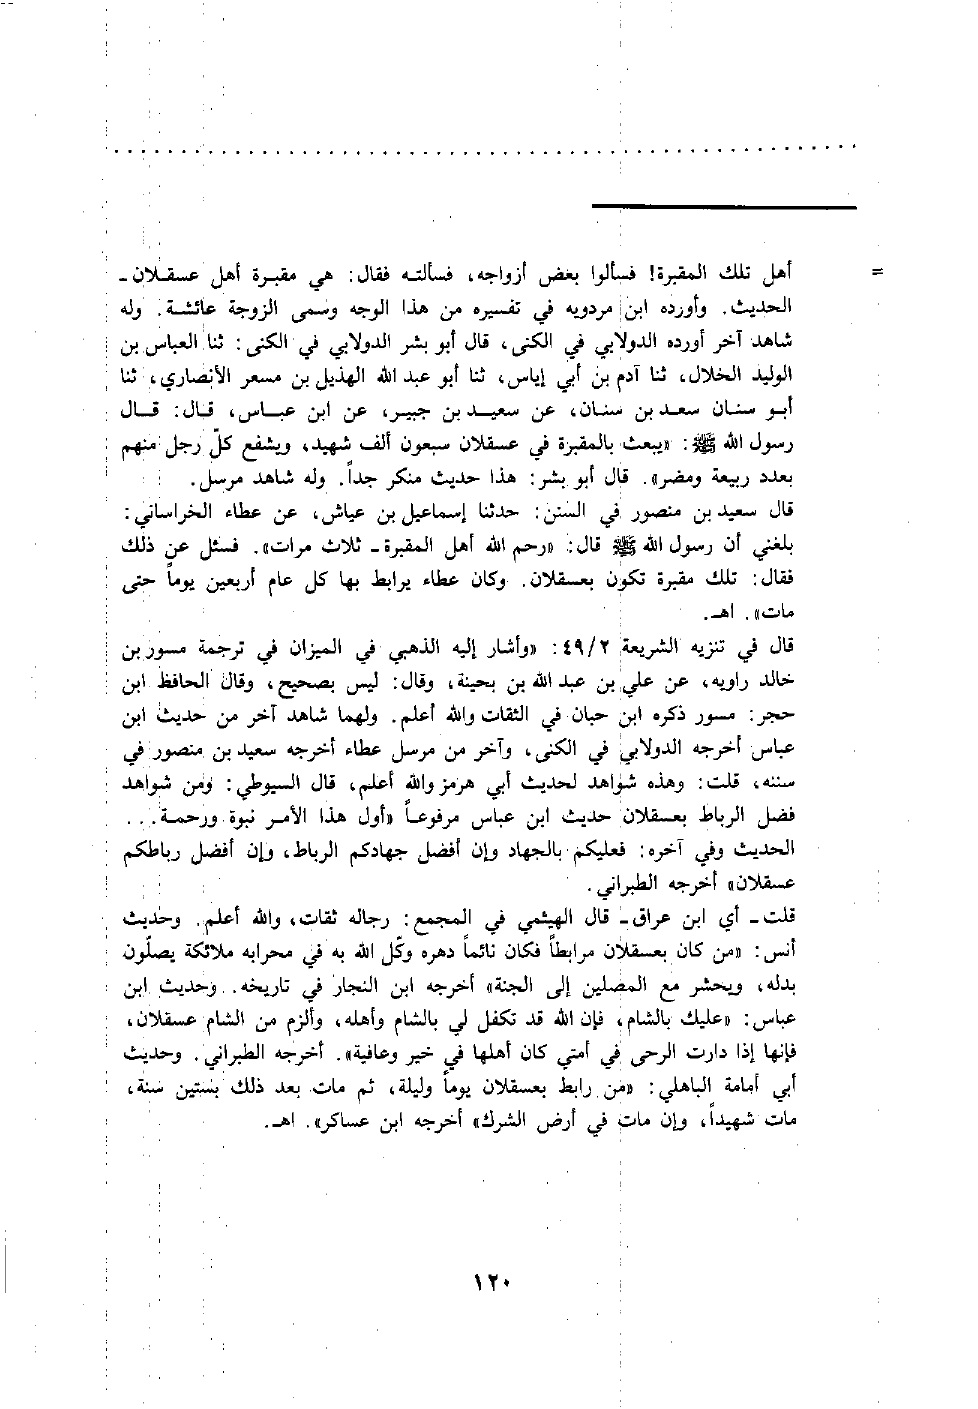 = أهل تلك المقبرة! فسألوا بعض أزواجه، فسألته فقال: هي مقبرة أهل عسقلان ـ
الحديث. وأورده ابن مردويه في تفسيره من هذا الوجه وسمى الزوجة عائشة. وله
شاهد آخر أورده الدولابي في الكنى، قال أبو بشر الدولابي في الكنى: ثنا العباس بن
الوليد الخلال، ثنا آدم بن أبي إياس، ثنا أبو عبد الله الهذيل بن مسعر الأنصاري، ثنا
أبو سنان سعد بن سنان، عن سعيد بن جبير، عن ابن عباس، قال: قال
رسول الله ﷺ: «يبعث بالمقبرة في عسقلان سبعون ألف شهيد، ويشفع كلّ رجل منهم
بعدد ربيعة ومضر». قال أبو بشر: هذا حديث منكر جداً. وله شاهد مرسل.
قال سعيد بن منصور في السنن: حدثنا إسماعيل بن عياش، عن عطاء الخراساني:
بلغني أن رسول الله ﷺ قال: «رحم الله أهل المقبرة ـ ثلاث مرات». فسئل عن ذلك
فقال: تلك مقبرة تكون بعسقلان. وكان عطاء يرابط بها كل عام أربعين يوماً حتى
مات». اهـ.
قال في تنزيه الشريعة ٤٩/٢: «وأشار إليه الذهبي في الميزان في ترجمة مسور بن
خالد راويه، عن علي بن عبد الله بن بحينة، وقال: ليس بصحيح، وقال الحافظ ابن
حجر: مسور ذكره ابن حبان في الثقات والله أعلم. ولهما شاهد آخر من حديث ابن
عباس أخرجه الدولابي في الكنى، وآخر من مرسل عطاء أخرجه سعيد بن منصور في
سننه، قلت: وهذه شواهد لحديث أبي هرمز والله أعلم، قال السيوطي: ومن شواهد
فضل الرباط بعسقلان حديث ابن عباس مرفوعاً «أول هذا الأمر نبوة ورحمة...
الحديث وفي آخره: فعليكم بالجهاد وإن أفضل جهادكم الرباط، وإن أفضل رباطكم
عسقلان» أخرجه الطبراني.
قلت ـ أي ابن عراق ـ قال الهيثمي في المجمع: رجاله ثقات، والله أعلم. وحديث
أنس: «من كان بعسقلان مرابطاً فكان نائماً دهره وكّل الله به في محرابه ملائكة يصلّون
بدله، ويحشر مع المصلين إلى الجنة» أخرجه ابن النجار في تاريخه. وحديث ابن
عباس: «عليك بالشام، فإن الله قد تكفل لي بالشام وأهله، وألزم من الشام عسقلان،
فإنها إذا دارت الرحى في أمتي كان أهلها في خير وعافية». أخرجه الطبراني. وحديث
أبي أمامة الباهلي: «من رابط بعسقلان يوماً وليلة، ثم مات بعد ذلك بستين سنة،
مات شهيداً، وإن مات في أرض الشرك» أخرجه ابن عساكر». اهـ.
١٢٠